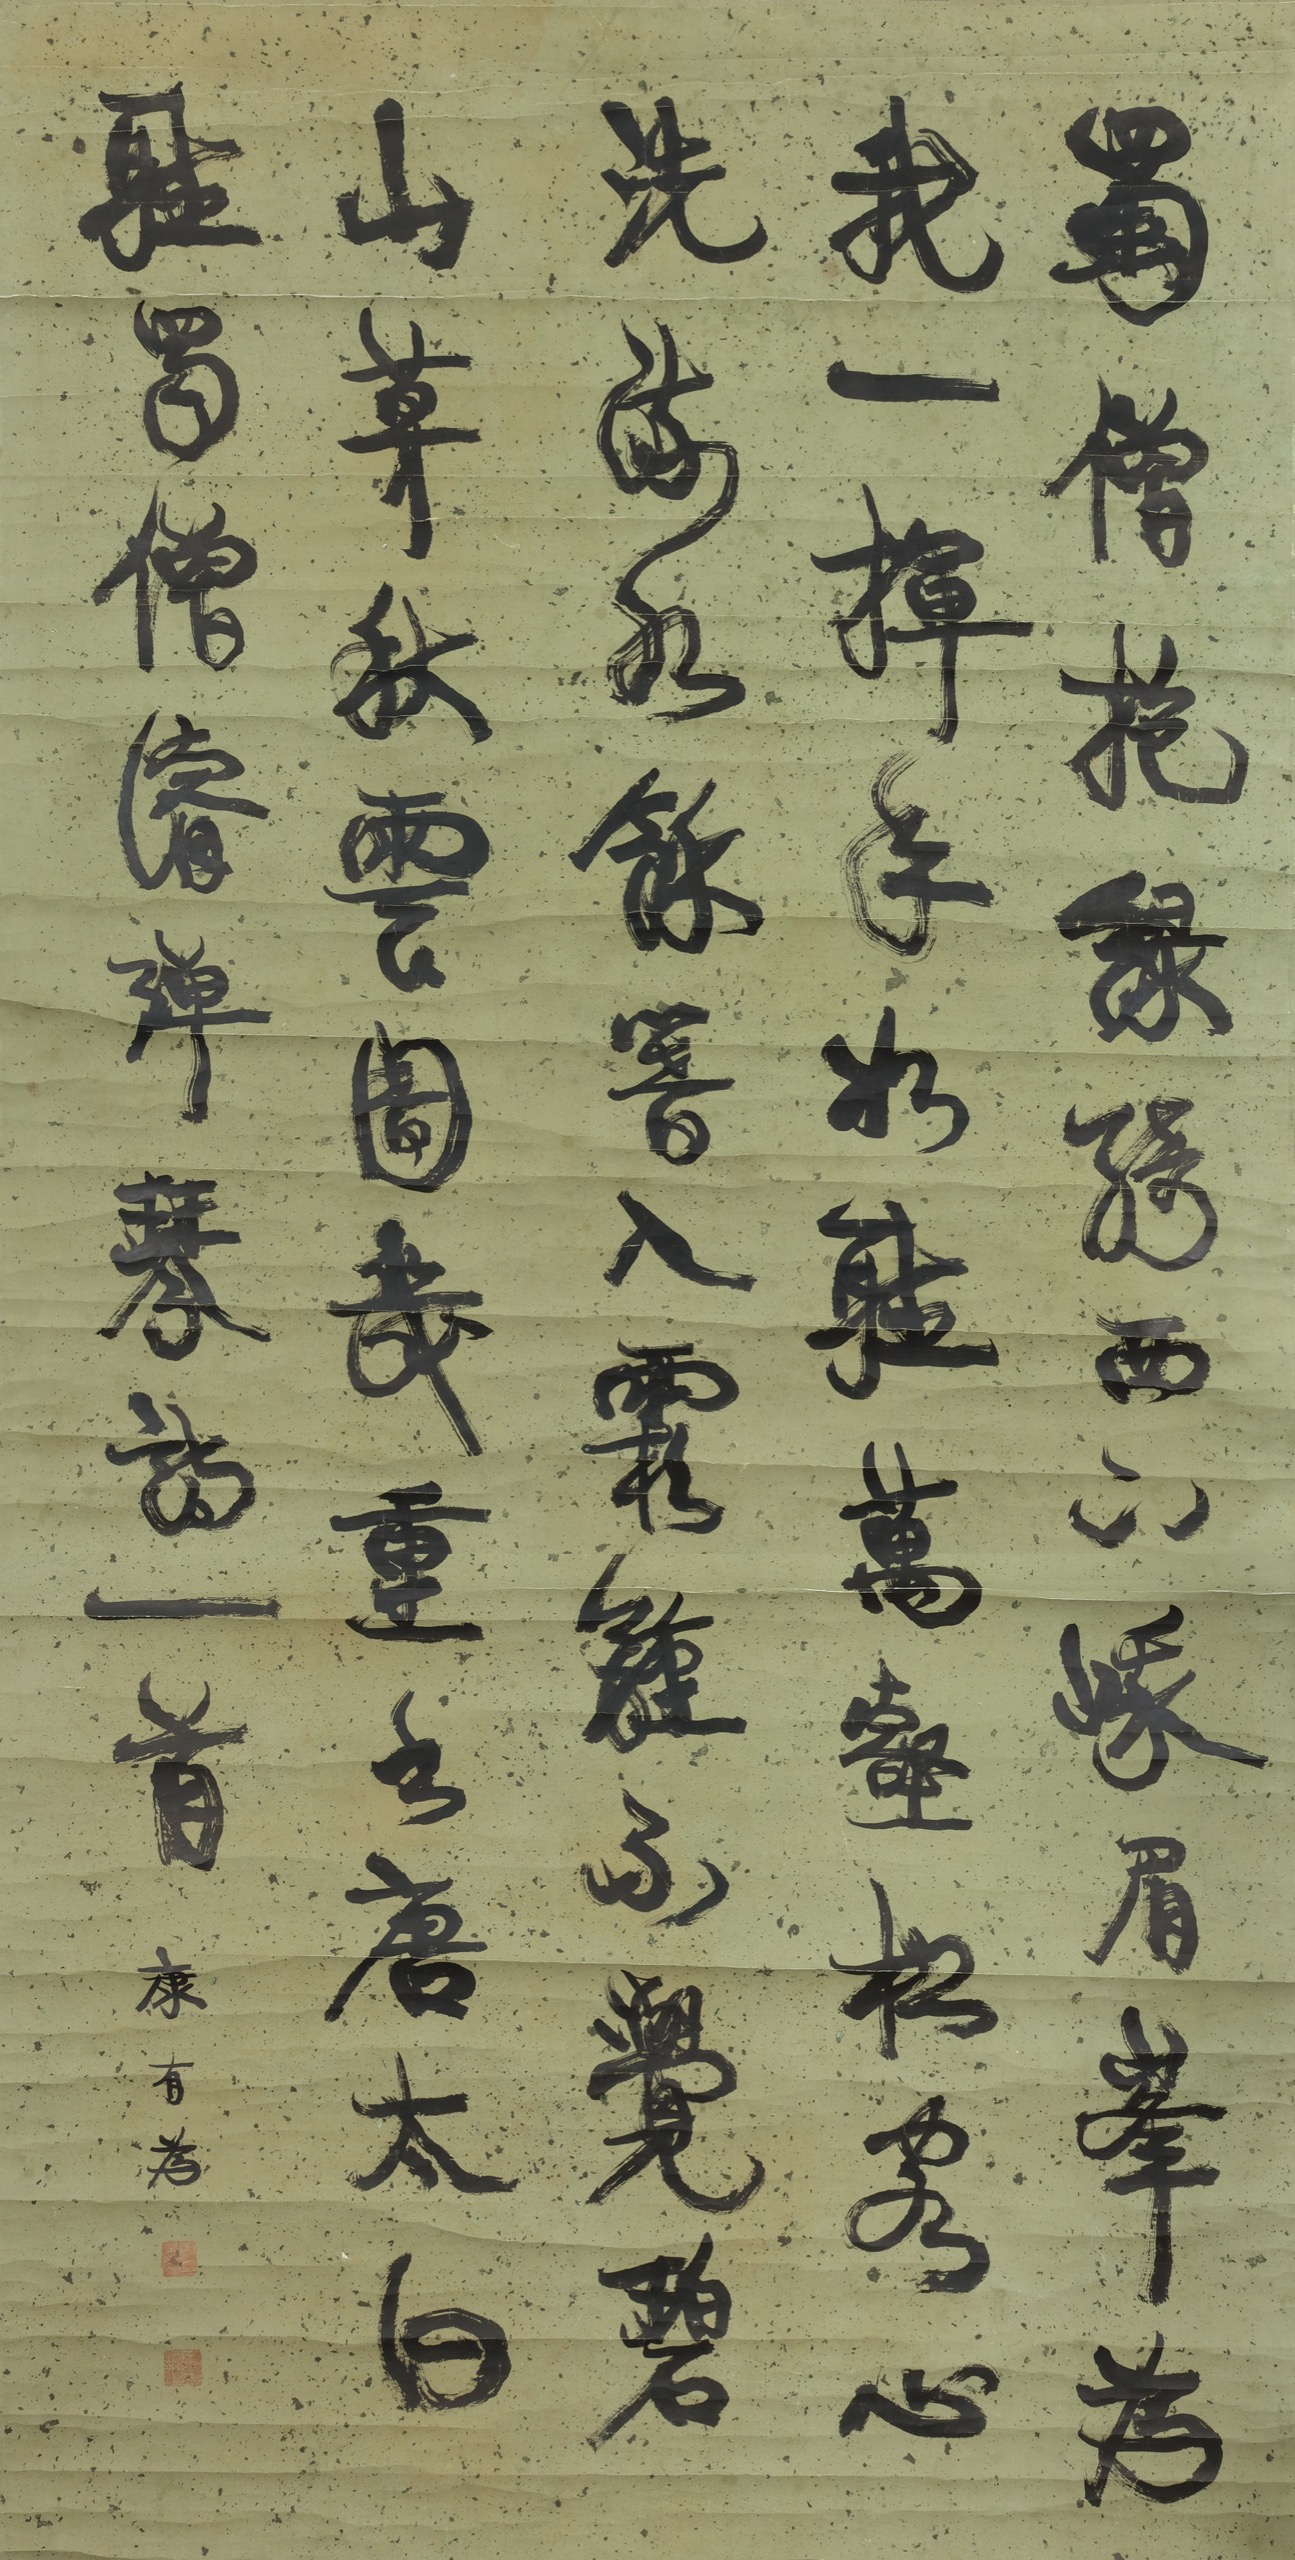 蜀僧抱綠綺西下峨眉峯為
我一揮手如聽萬壑松客心
洗流水餘響入霜鐘不覺碧
山草秋雲闇幾重書唐太白
聽蜀僧濬彈琴詩一首
康有為